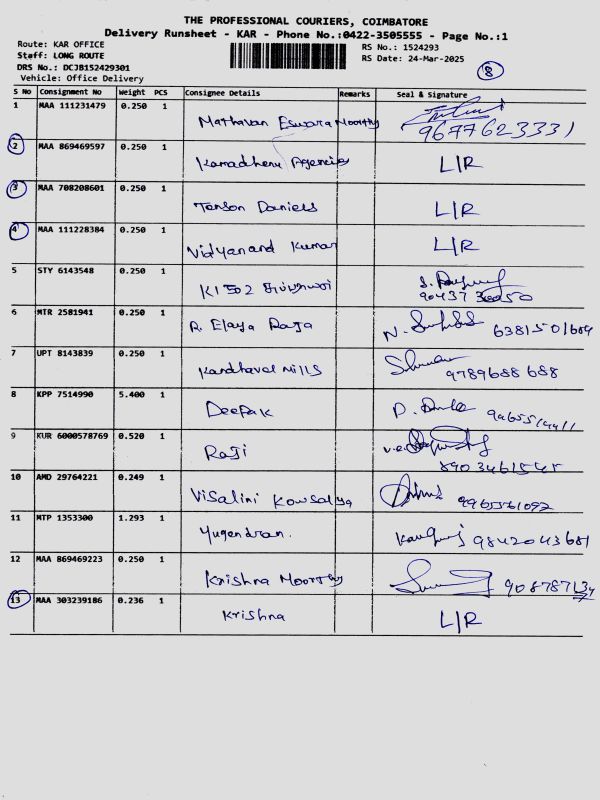 THE PROFESSIONAL COURIERS, COIMBATORE
Delivery Runsheet - KAR - Phone No.:0422-3505555 - Page No.:1
Route: KAR OFFICE
RS No.: 1524293
Staff: LONG ROUTE
RS Date: 24-Mar-2025
DRS No.: DCJB152429301
Vehicle: Office Delivery
8
S No Consignment No Weight PCS Consignee Details Remarks Seal & Signature
1 MAA 111231479 0.250 1 Mathavan Eswara Moorthy 9677623331
2 MAA 869469597 0.250 1 Kamadhenu Agencies L/R
3 MAA 708208601 0.250 1 Tonson Daniels L/R
4 MAA 111228384 0.250 1 Vidyanand Kumar L/R
5 STY 6143548 0.250 1
6 MTR 2581941 0.250 1 R. Elaya Raja 6381501684
7 UPT 8143839 0.250 1 Kandhavel Mills 9789688688
8 KPP 7514990 5.400 1 Deepak
9 KUR 6000578769 0.520 1 Raji 8903461545
10 AMD 29764221 0.249 1 Visalini Kowsalya
11 MTP 1353300 1.293 1 Yugendran. 9842043681
12 MAA 869469223 0.250 1 Krishna Moorthy
13 MAA 303239186 0.236 1 Krishna L/R